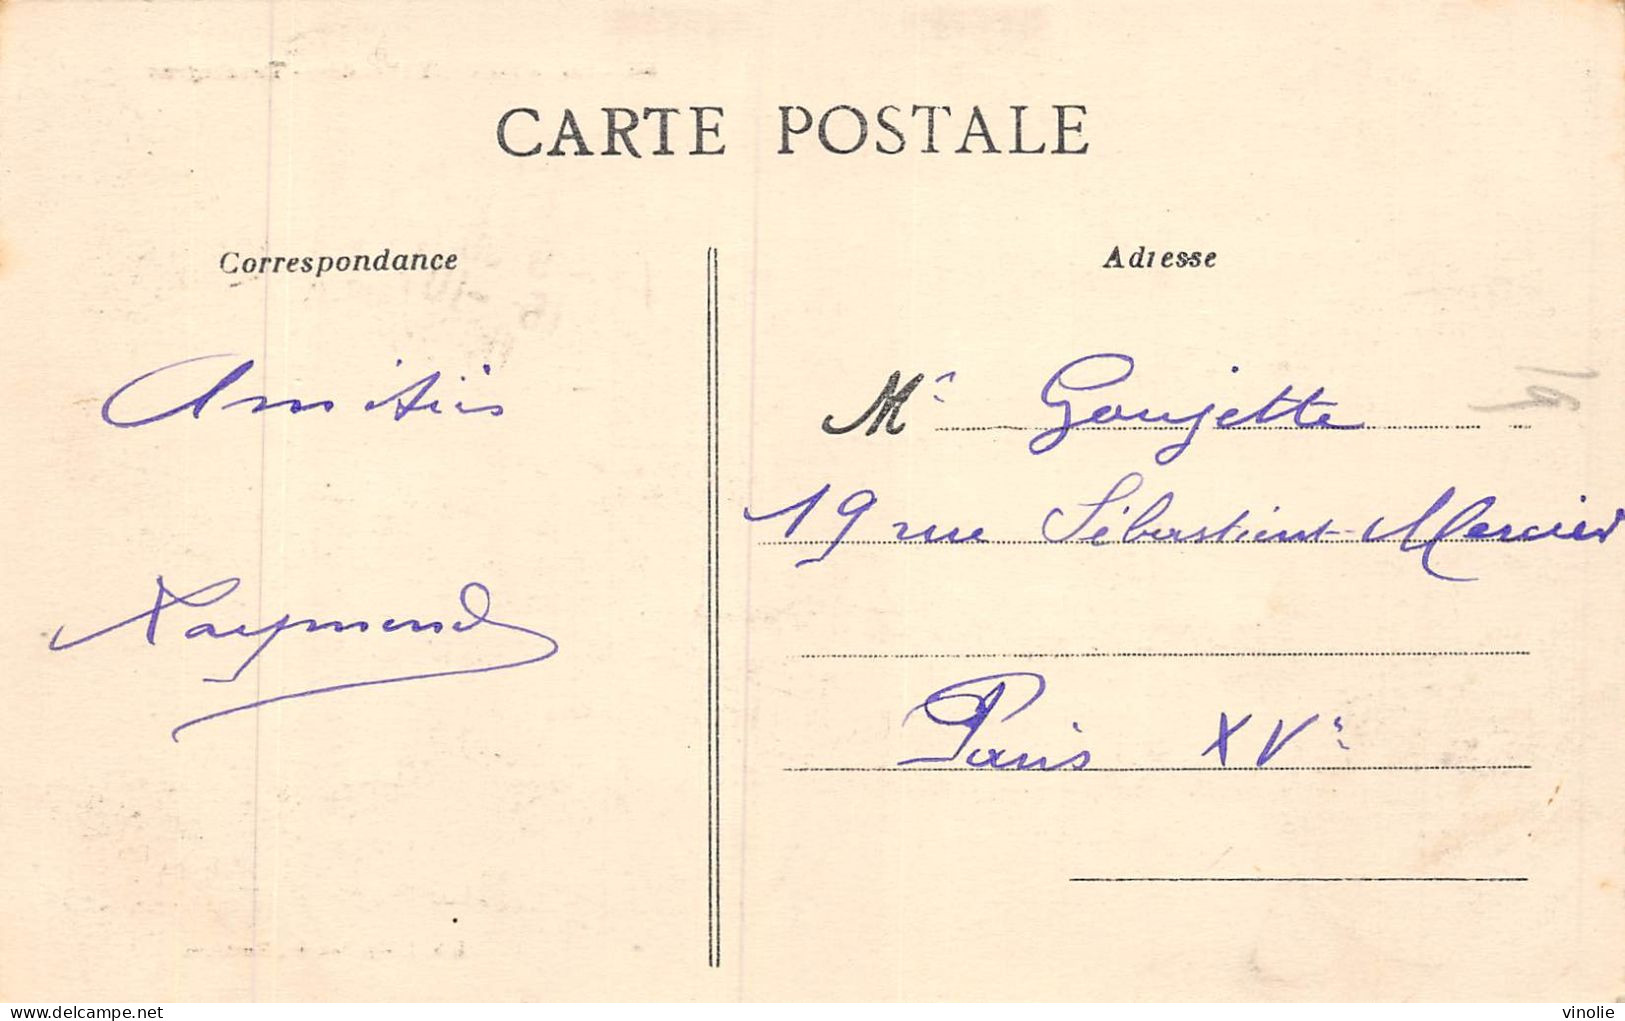 CARTE POSTALE
Correspondance
Adresse
Amitiés
Raymond
Mr Goujette
19 rue Sébastient-Mercier
Paris XVe
19
delcampe.net
vinolie